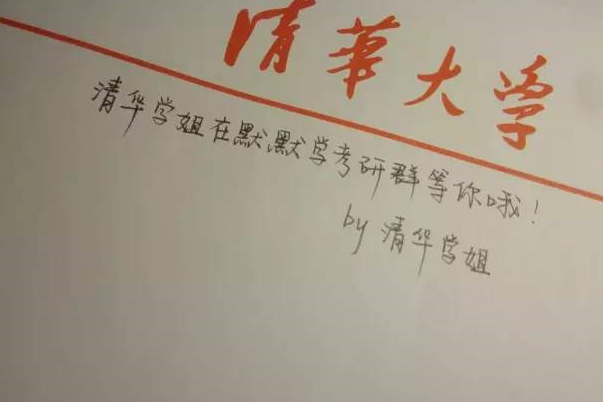 清華大学
清华学姐在默默学考研群等你哦!
by 清华学姐